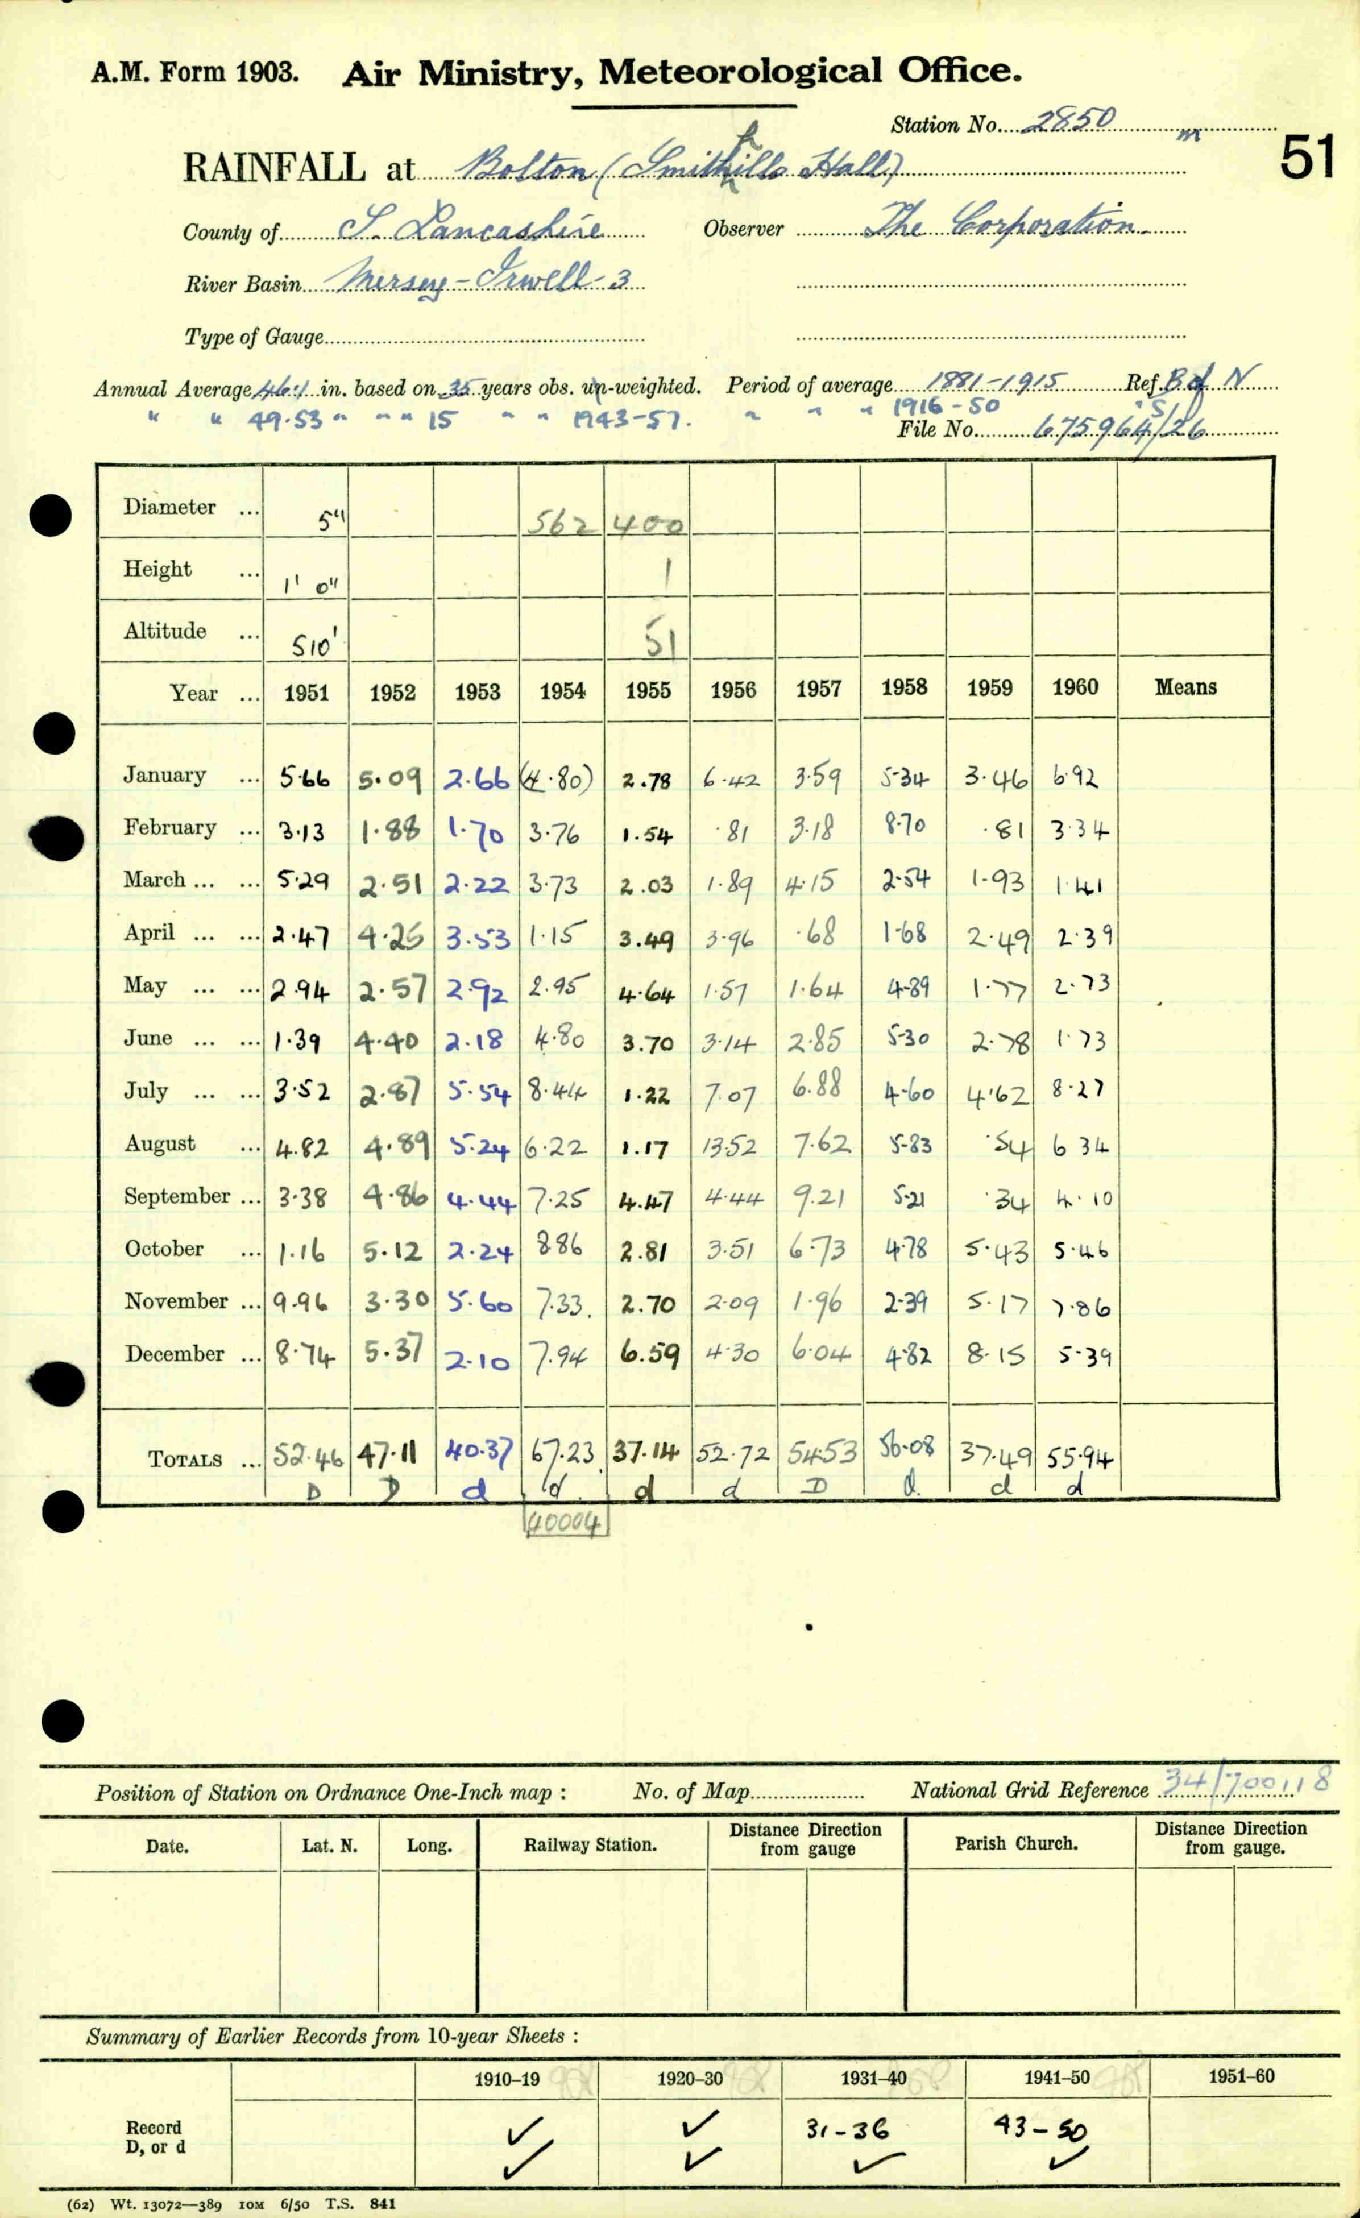 A.M. Form 1903. Air Ministry, Meteorological Office.
Station No. 2850 m
51
RAINFALL at Bolton (Smithills Hall)
County of S. Lancashire Observer The Corporation.
River Basin Mersey - Irwell - 3
Type of Gauge
Annual Average 46.1 in. based on 35 years obs. un-weighted. Period of average 1881-1915 Ref. B of N
" " 49.53 " " " 15 " " 1943-57. " " " 1916-50
File No. 675964/S/26
Diameter ... 5" 562 400
Height ... 1' 0" 1
Altitude ... 510' 51
Year ... 1951 1952 1953 1954 1955 1956 1957 1958 1959 1960 Means
January ... 5.66 5.09 2.66 (4.80) 2.78 6.42 3.59 5.34 3.46 6.92
February ... 3.13 1.88 1.70 3.76 1.54 .81 3.18 8.70 .81 3.34
March ... ... 5.29 2.51 2.22 3.73 2.03 1.89 4.15 2.54 1.93 1.41
April ... ... 2.47 4.25 3.53 1.15 3.49 3.96 .68 1.68 2.49 2.39
May ... ... 2.94 2.57 2.92 2.95 4.64 1.57 1.64 4.89 1.77 2.73
June ... ... 1.39 4.40 2.18 4.80 3.70 3.14 2.85 5.30 2.78 1.73
July ... ... 3.52 2.87 5.54 8.44 1.22 7.07 6.88 4.60 4.62 8.27
August ... 4.82 4.89 5.24 6.22 1.17 13.52 7.62 5.83 .54 6 34
September ... 3.38 4.86 4.44 7.25 4.47 4.44 9.21 5.21 .34 4.10
October ... 1.16 5.12 2.24 8.86 2.81 3.51 6.73 4.78 5.43 5.46
November ... 9.96 3.30 5.60 7.33. 2.70 2.09 1.96 2.39 5.17 7.86
December ... 8.74 5.37 2.10 7.94 6.59 4.30 6.04 4.82 8.15 5.39
TOTALS ... 52.46 47.11 40.37 67.23 37.14 52.72 54.53 56.08 37.49 55.94
D D d d d d D d d d
40004
Position of Station on Ordnance One-Inch map : No. of Map National Grid Reference 34/700118
Date. Lat. N. Long. Railway Station. Distance Direction from gauge Parish Church. Distance Direction from gauge.
Summary of Earlier Records from 10-year Sheets :
1910-19 1920-30 1931-40 1941-50 1951-60
Record ✓ ✓ 31-36 43-50
D, or d ✓ ✓ ✓ ✓
(62) Wt. 13072—389 10M 6/50 T.S. 841